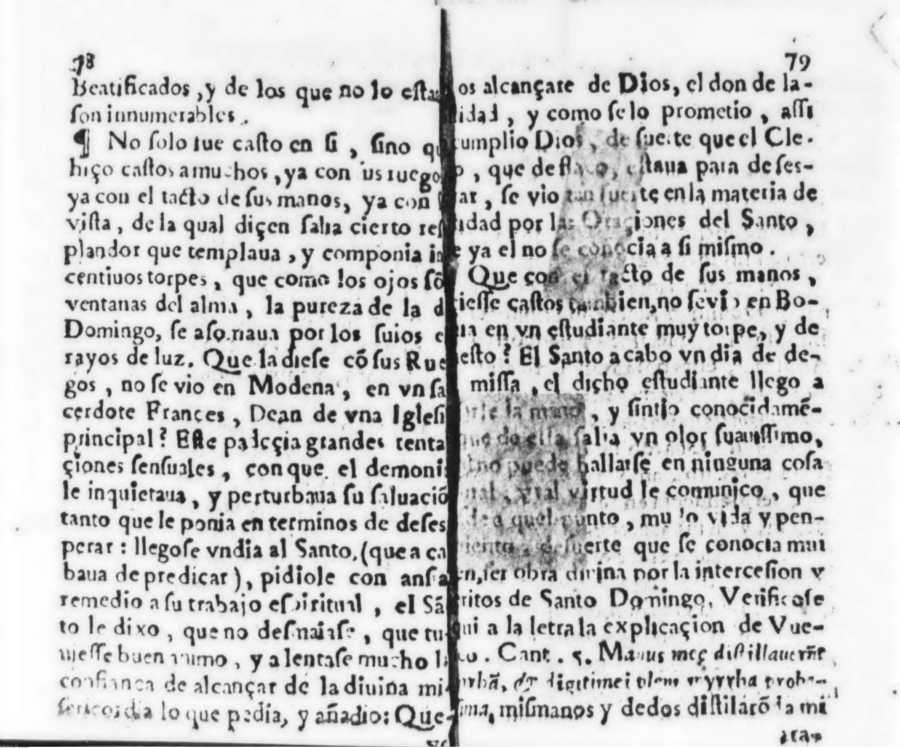 78
Beatificados, y de los que no lo esta
son innumerables.
¶ No solo fue casto en si, sino qu
hiço castos a muchos, ya con sus ruego
ya con el tacto de sus manos, ya con
vista, de la qual diçen salia cierto res
plandor que templaua, y componia in
centiuos torpes, que como los ojos sõ
ventanas del alma, la pureza de la d
Domingo, se asomaua por los suios e
rayos de luz. Que la diese cõ sus Rue
gos, no se vio en Modena, en vn sa
cerdote Frances, Dean de vna Iglesi
principal? Este padeçia grandes tenta
çiones sensuales, con que el demoni
le inquietaua, y perturbaua su saluaciõ
tanto que le ponia en terminos de deses
perar: llegose vn dia al Santo, (que aca
baua de predicar), pidiole con ansia
remedio a su trabajo espiritual, el Sã
to le dixo, que no desmaiase, que tu
uiesse buen animo, y alentase mucho l
confiança de alcançar de la diuina mi
sericordia lo que pedia, y añadio: Que
79
os alcançare de Dios, el don de la
idad, y como se lo prometio, assi
cumplio Dios, de suerte que el Cle-
o, que de flaco, estaua para deses-
ar, se vio tan fuerte en la materia de
idad por las Oraçiones del Santo,
e ya el no se conocia a si mismo.
Que con el tacto de sus manos,
iesse castos tambien, no se vio en Bo-
ia en vn estudiante muy torpe, y de
esto? El Santo acabo vn dia de de-
missa, el dicho estudiante llego a
la mano, y sintio conocidamẽ-
que de ella salia vn olor suauissimo,
no puede hallarse en ninguna cosa
tal virtud le comunico, que
aquel punto, mudo vida y pen-
suerte que se conocia mui
en, ser obra diuina por la intercesion y
ritos de Santo Domingo. Verificose
qui a la letra la explicaçion de Vue-
co. Cant. 5. Manus meę distillauerũt
myrrhã, & digiti mei pleni myrrha proba-
sima, mis manos y dedos distilarõ la mi
rra-